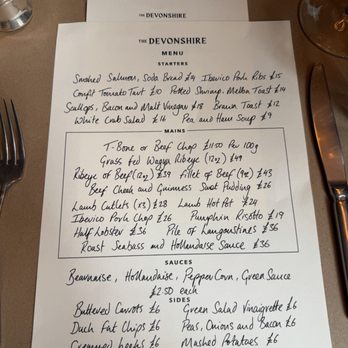 THE DEVONSHIRE
THE DEVONSHIRE
MENU
STARTERS
Smoked Salmon, Soda Bread £14 Iberico Pork Ribs £15
Confit Tomato Tart £10 Potted Shrimp, Melba Toast £14
Scallops, Bacon and Malt Vinegar £18 Brawn Toast £12
White Crab Salad £16 Pea and Ham Soup £9
MAINS
T-Bone or Beef Chop £11.50 Per 100g
Grass fed Wagyu Ribeye (12oz) £49
Ribeye of Beef (12oz) £39 Fillet of Beef (9oz) £43
Beef Cheek and Guinness Suet Pudding £26
Lamb Cutlets (x3) £28 Lamb Hot Pot £24
Iberico Pork Chop £26 Pumpkin Risotto £19
Half Lobster £36 Pile of Langoustines £36
Roast Seabass and Hollandaise Sauce £36
SAUCES
Bearnaise, Hollandaise, PepperCorn, Green Sauce
£2.50 each
SIDES
Buttered Carrots £6 Green Salad Vinaigrette £6
Duck Fat Chips £6 Peas, Onions and Bacon £6
Creamed leeks £6 Mashed Potatoes £6